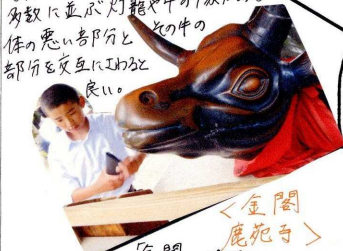 多数に並ぶ灯籠や牛の
体の悪い部分と その牛の
部分を交互にさわると
良い。
<金閣
鹿苑寺>
「金閣